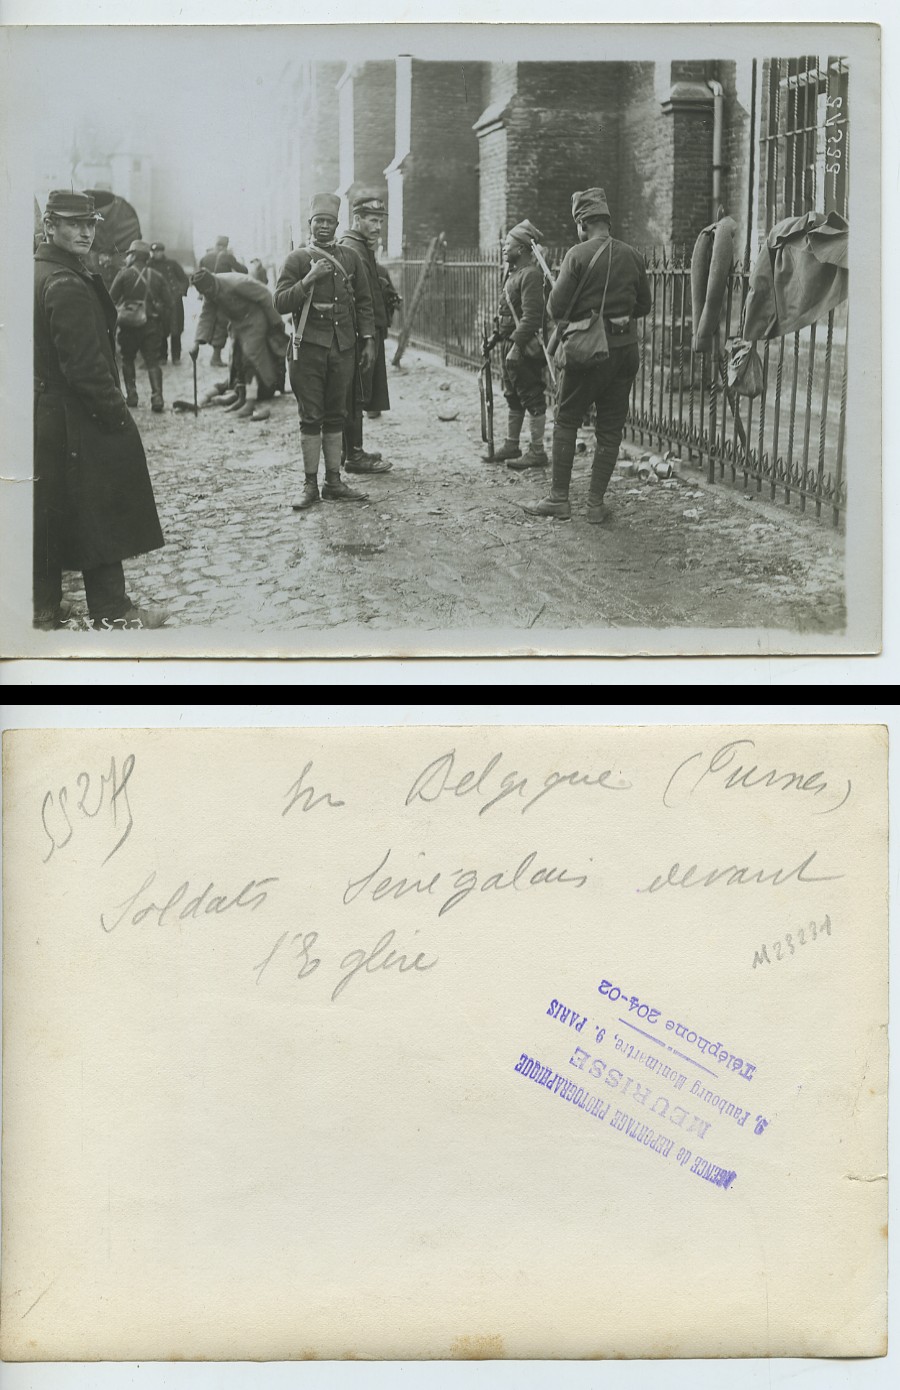 27522
55275
En Belgique (Furnes)
Soldats Sénégalais devant
l'Eglise
M23231
AGENCE de REPORTAGE PHOTOGRAPHIQUE
MEURISSE
9, Faubourg Montmartre, 9. PARIS
Téléphone 204-02